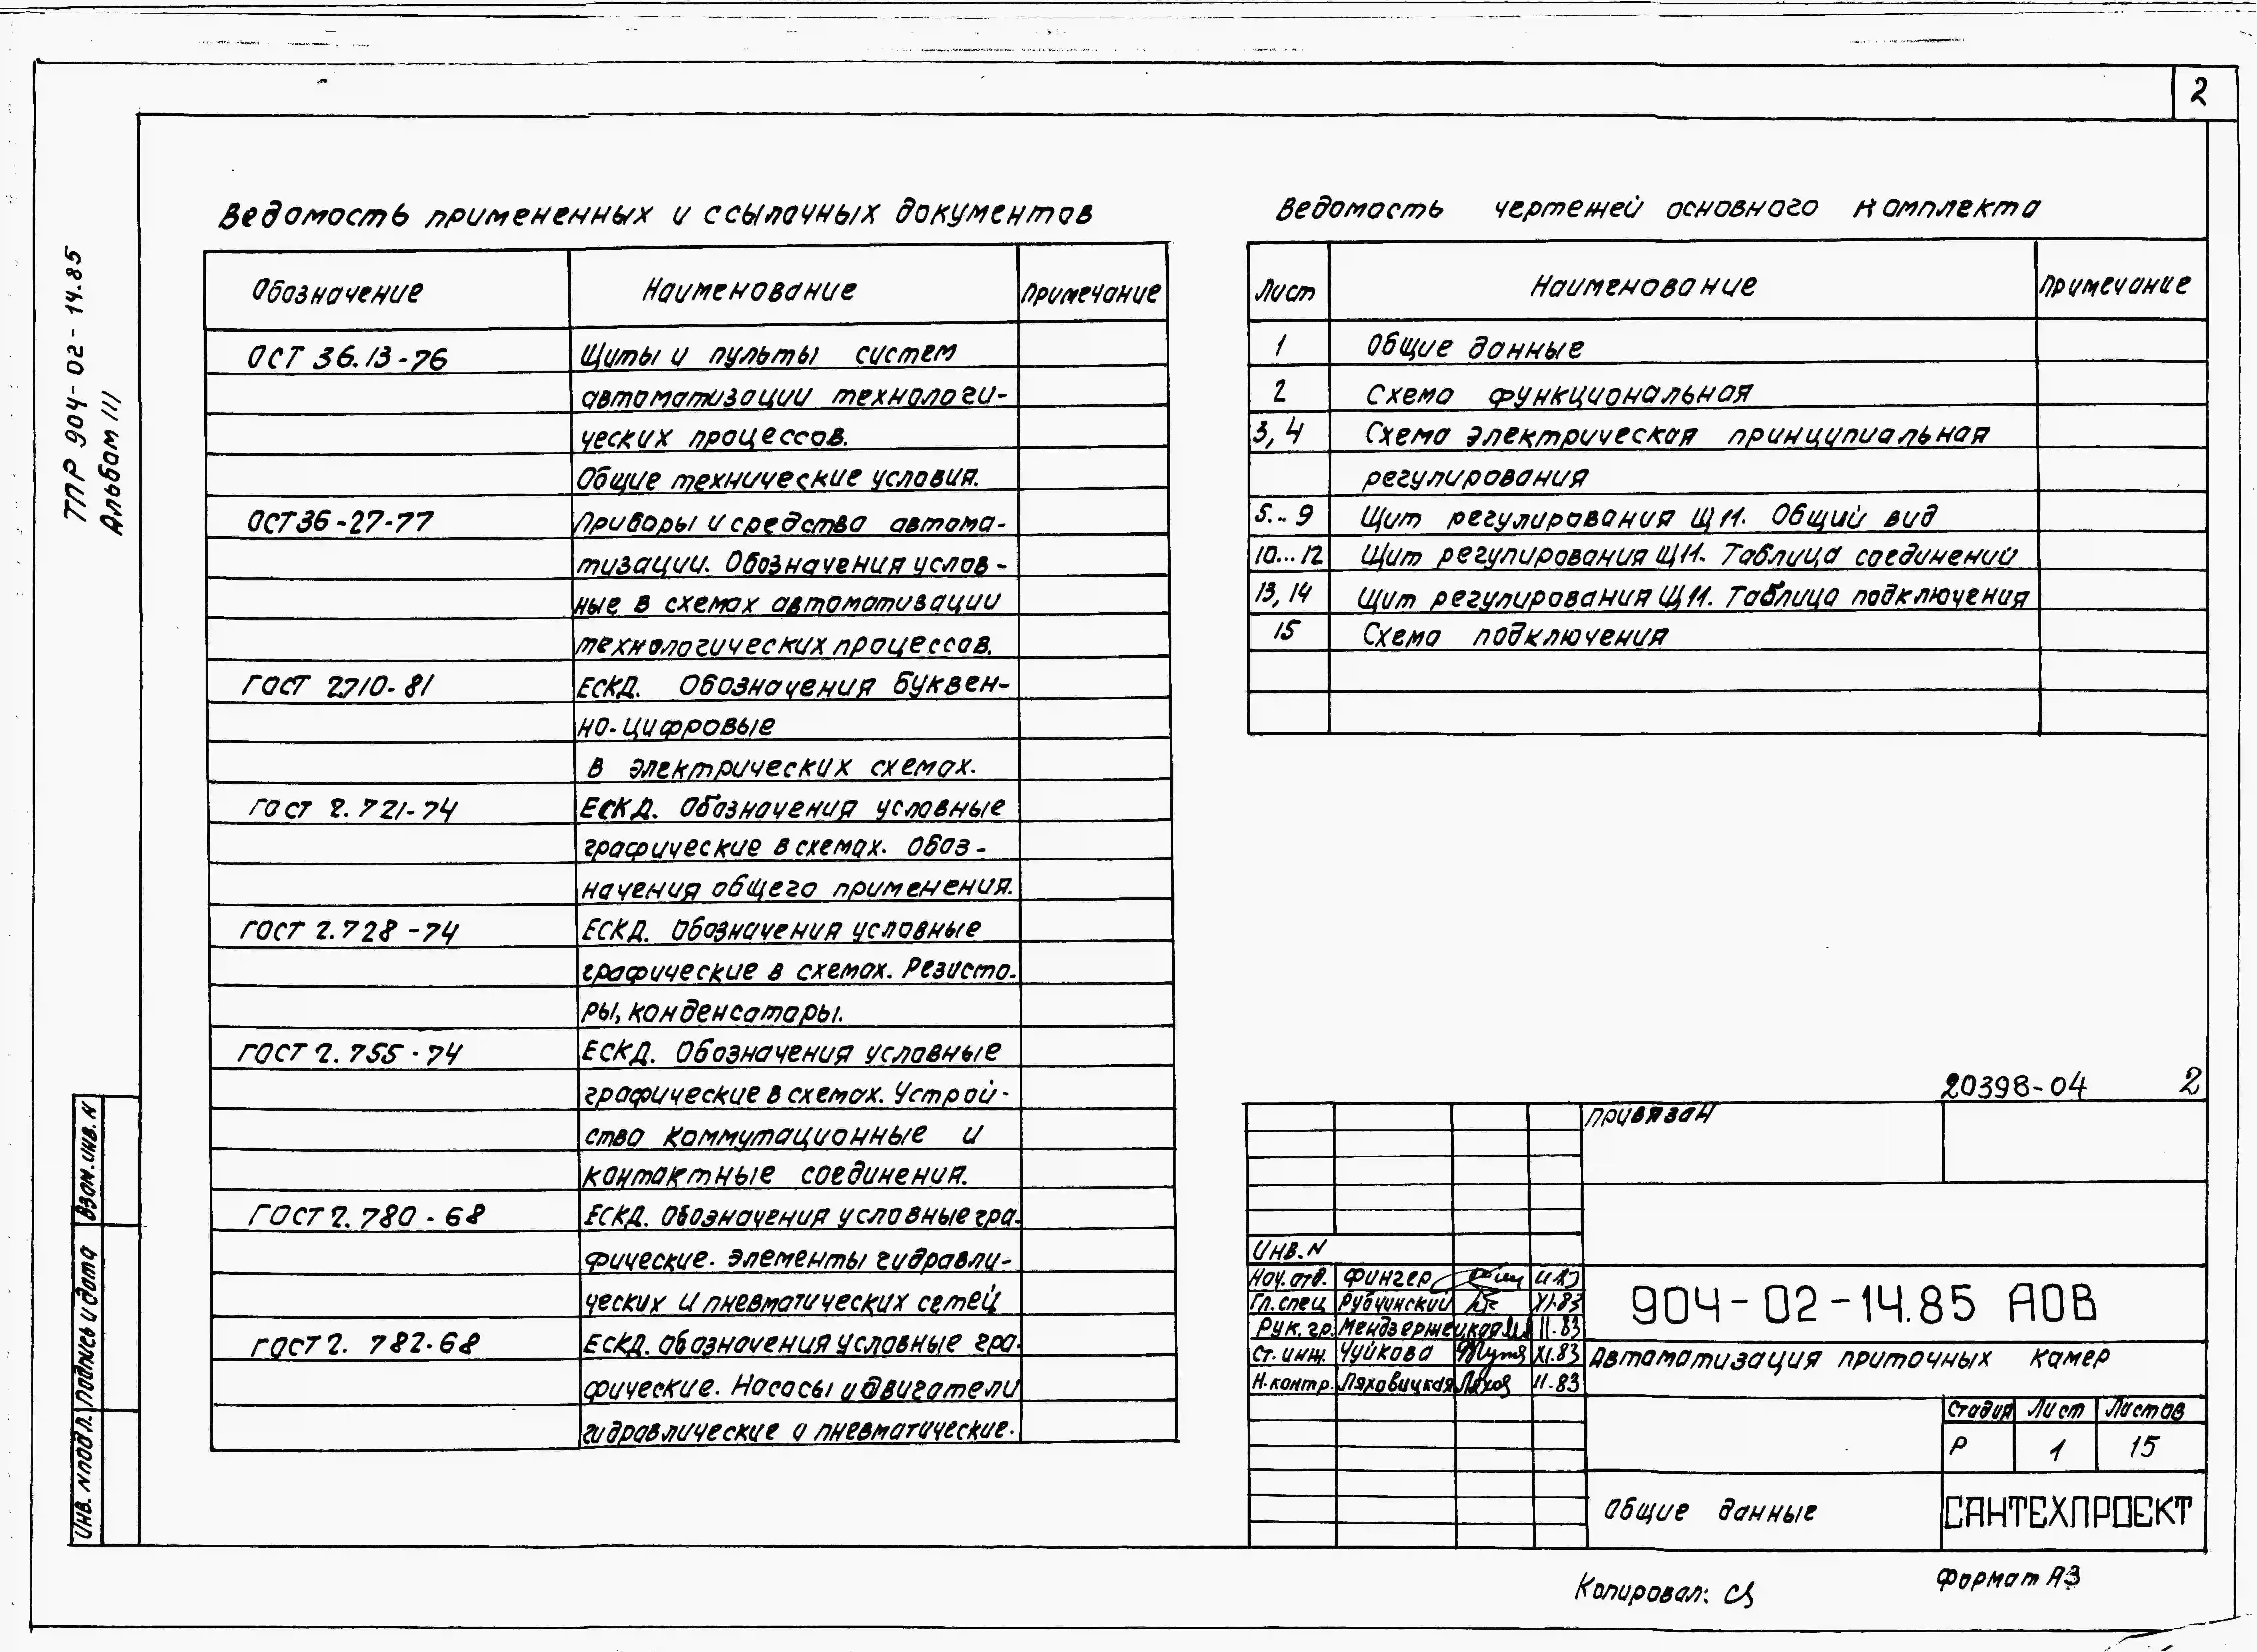 2
ТПР 904-02-14.85
Альбом III
Ведомость примененных и ссылочных документов
Обозначение Наименование Примечание
ОСТ 36.13-76 Щиты и пульты систем
автоматизации технологи-
ческих процессов.
Общие технические условия.
ОСТ36-27-77 Приборы и средства автома-
тизации. Обозначения услов-
ные в схемах автоматизации
технологических процессов.
ГОСТ 2.710-81 ЕСКД. Обозначения буквен-
но-цифровые
в электрических схемах.
ГОСТ 2.721-74 ЕСКД. Обозначения условные
графические в схемах. Обоз-
начения общего применения.
ГОСТ 2.728-74 ЕСКД. Обозначения условные
графические в схемах. Резисто-
ры, конденсаторы.
ГОСТ 2.755-74 ЕСКД. Обозначения условные
графические в схемах. Устрой-
ства коммутационные и
контактные соединения.
ГОСТ 2.780-68 ЕСКД. Обозначения условные гра-
фические. Элементы гидравли-
ческих и пневматических сетей
ГОСТ 2.782-68 ЕСКД. Обозначения условные гра-
фические. Насосы и двигатели
гидравлические и пневматические.
Ведомость чертежей основного комплекта
Лист Наименование Примечание
1 Общие данные
2 Схема функциональная
3, 4 Схема электрическая принципиальная
регулирования
5...9 Щит регулирования Щ11. Общий вид
10...12 Щит регулирования Щ11. Таблица соединений
13, 14 Щит регулирования Щ11. Таблица подключения
15 Схема подключения
20398-04 2
Привязан
Инв. N
Нач. отд. Фингер
Гл. спец Рубчинский XI.83
Рук. гр. Мендзержецкая 11.83
Ст. инж. Чуйкова XI.83
Н. контр. Ляховицкая 11.83
904-02-14.85 АОВ
Автоматизация приточных камер
Стадия Лист Листов
Р 1 15
Общие данные
САНТЕХПРОЕКТ
Инв. N подл. Подпись и дата Взам. инв. N
Копировал:
Формат А3